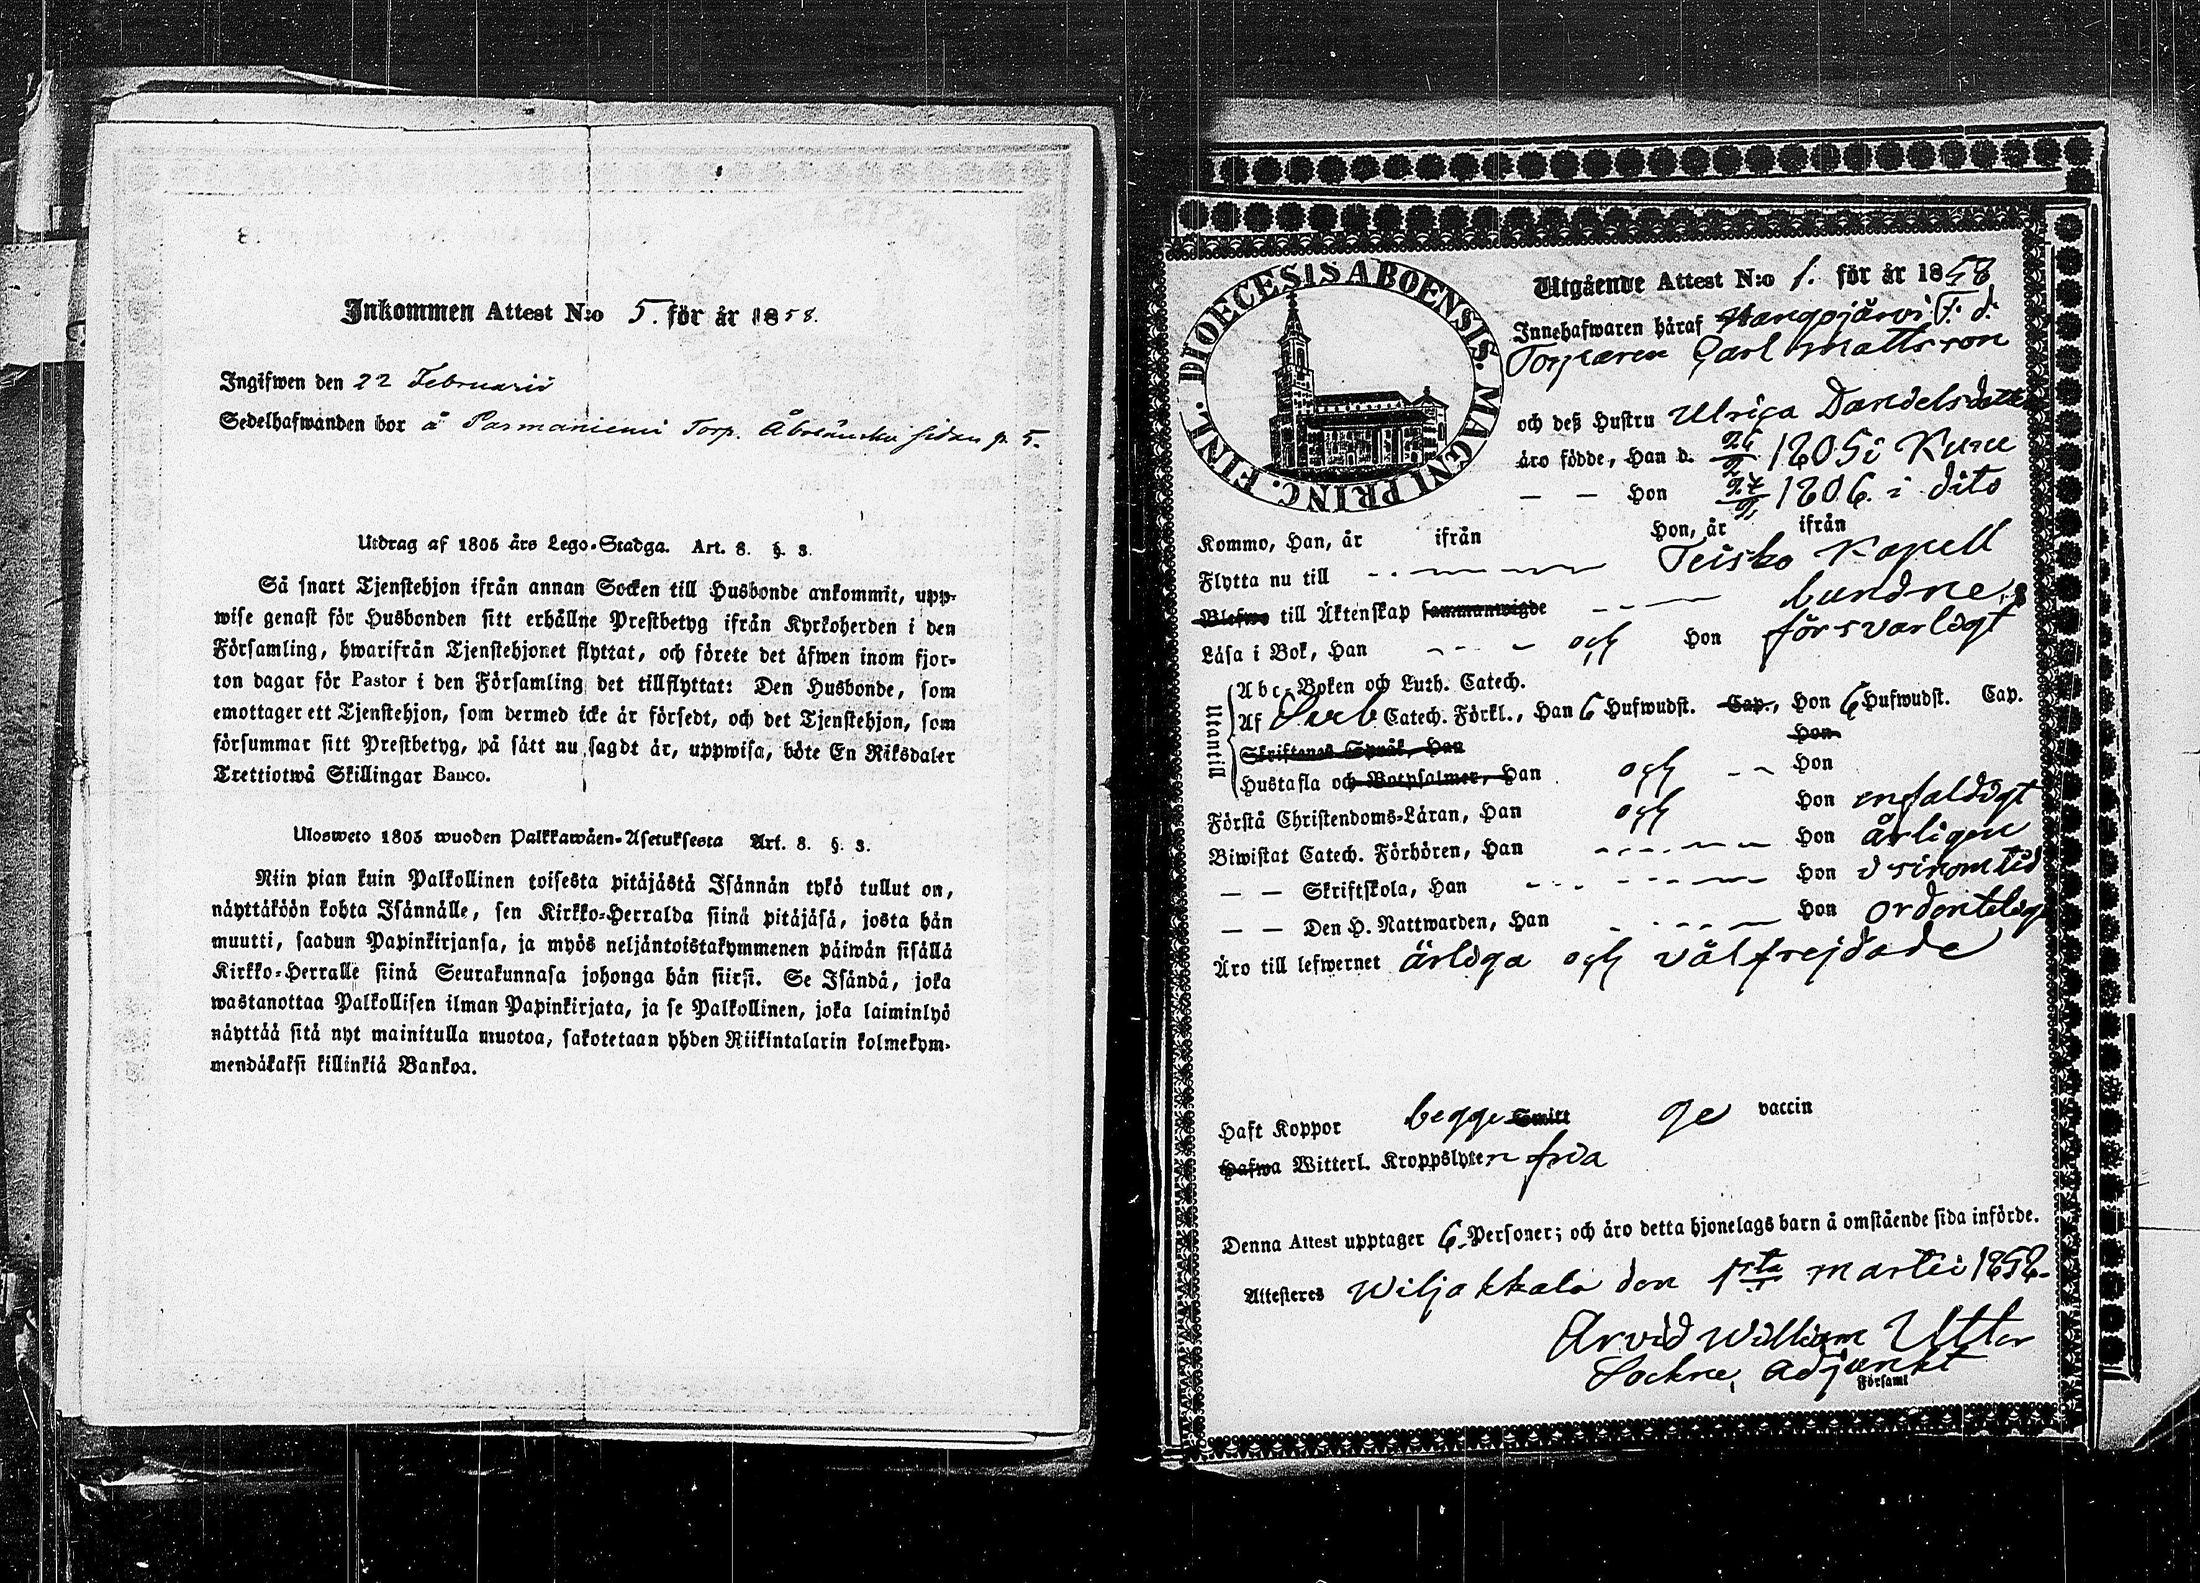 Inkommen Attest N:o 5. för år 1858.
Ingifwen den 22 Februarii
Sedelhafwanden bor å Pasmaniemi Torp.
Utdrag af 1805 års Lego-Stadga. Art. 8. §. 3.
Så snart Tjenstehjon ifrån annan Socken till Husbonde ankommit, upp-
wise genast för Husbonden sitt erhållne Prestbetyg ifrån Kyrkoherden i den
Församling, hwarifrån Tjenstehjonet flyttat, och förete det äfwen inom fjor-
ton dagar för Pastor i den Församling det tillflyttat: Den Husbonde, som
emottager ett Tjenstehjon, som dermed icke är försedt, och det Tjenstehjon, som
försummar sitt Prestbetyg, på sätt nu sagdt är, uppwisa, böte En Riksdaler
Trettiotwå Skillingar Banco.
Ulosweto 1805 wuoden Palkkawäen-Asetuksesta Art. 8. §. 3.
Niin pian kuin Palkollinen toisesta pitäjästä Isännän tykö tullut on,
näyttäköön kohta Isännälle, sen Kirkko-Herralda siinä pitäjäsä, josta hän
muutti, saadun Papinkirjansa, ja myös neljäntoistakymmenen päiwän sisällä
Kirkko-Herralle siinä Seurakunnasa johonga hän siirsi. Se Isändä, joka
wastanottaa Palkollisen ilman Papinkirjata, ja se Palkollinen, joka laiminlyö
näyttää sitä nyt mainitulla muotoa, sakotetaan yhden Riikintalarin kolmekym-
mendäkaksi killinkiä Bankoa.
DIOECESIS ABOENSIS. MAGNI PRINC. FINL.
Utgående Attest N:o 1. för år 1858
Innehafwaren häraf
Torparen Carl Mattsson
och deß Hustru Ulrica Danielsdotter
äro födde, Han d. 1805 i Kuru
— — Hon 1806. i dito
Kommo, Han, år ifrån Hon, år ifrån
Flytta nu till Teisko Kapell
Blefwo till Äktenskap sammanwigde bundne,
Läsa i Bok, Han och Hon försvarligt
Utantill
Abc-Boken och Luth. Catech.
Af Sveb Catech. Förkl., Han 6 Hufwudst. Cap., Hon 6 Hufwudst. Cap.
Skriftenes Språk, Han Hon
Hustafla och Botpsalmer, Han och Hon
Förstå Christendoms-Läran, Han och Hon enfaldigt
Biwistat Catech. Förhören, Han Hon årligen
— — Skriftskola, Han Hon i sinom tid
— — Den H. Nattwarden, Han Hon ordenteligt
Äro till lefwernet ärliga och välfrejdade
Haft Koppor begge Smitt ge vaccin
Hafwa Witterl. Kroppslyten fria
Denna Attest upptager 6 Personer; och äro detta hjonelags barn å omstående sida införde.
Attesteres Wiljakkala den 1sta martii 1858.
Arvid William Utter
Sockne, adjunkt
Församl